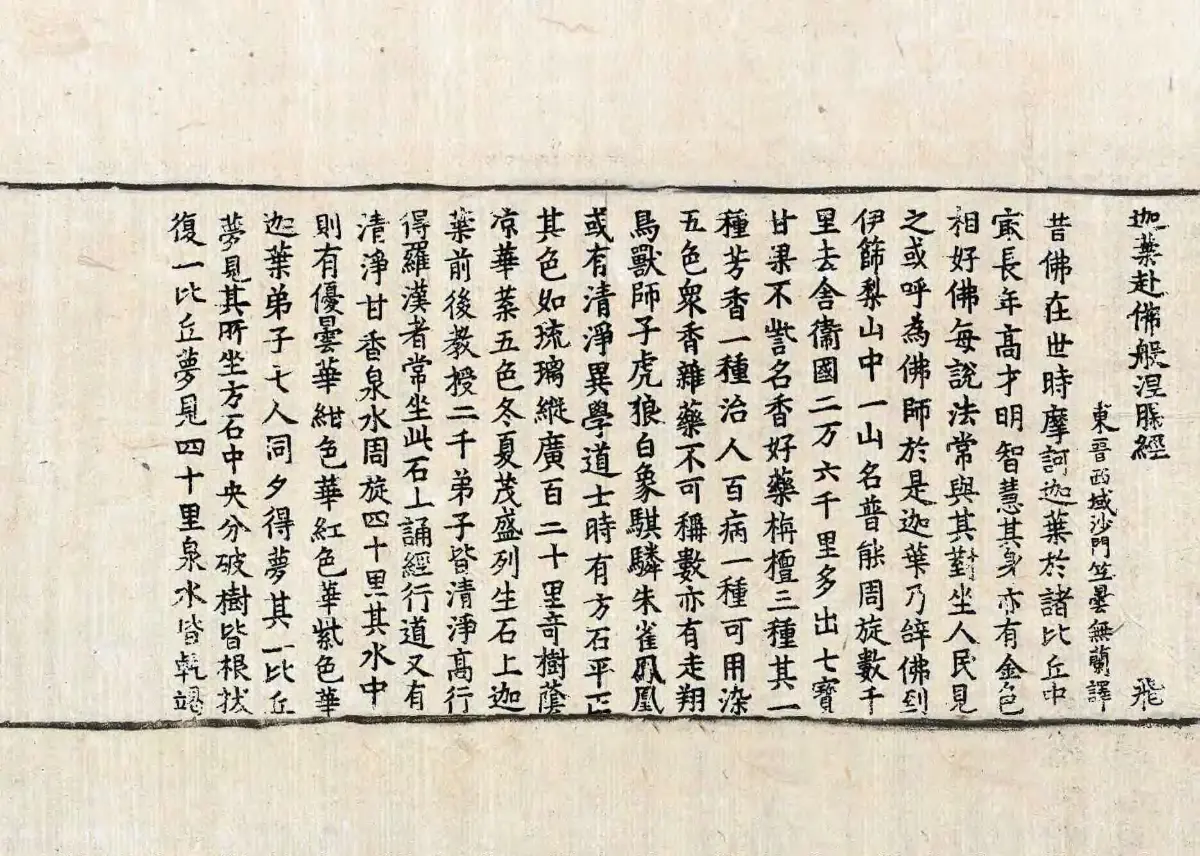 迦葉赴佛般涅槃經　飛
東晉西域沙門竺曇無蘭譯
昔佛在世時摩訶迦葉於諸比丘中
寂長年高才明智慧其身亦有金色
相好佛每說法常與其對坐人民見
之或呼為佛師於是迦葉乃辝佛到
伊篩梨山中一山名普能周旋數千
里去舍衛國二万六千里多出七寶
甘果不訾名香好藥栴檀三種其一
種芳香一種治人百病一種可用染
五色衆香雜藥不可稱數亦有走翔
鳥獸師子虎狼白象騏驎朱雀鳳凰
或有清淨異學道士時有方石平正
其色如琉璃縱廣百二十里竒樹蔭
凉華葉五色冬夏茂盛列生石上迦
葉前後教授二千弟子皆清淨高行
得羅漢者常坐此石上誦經行道又有
清淨甘香泉水周旋四十里其水中
則有優曇華紺色華紅色華紫色華
迦葉弟子七人同夕得夢其一比丘
夢見其所坐方石中央分破樹皆根拔
復一比丘夢見四十里泉水皆乾竭